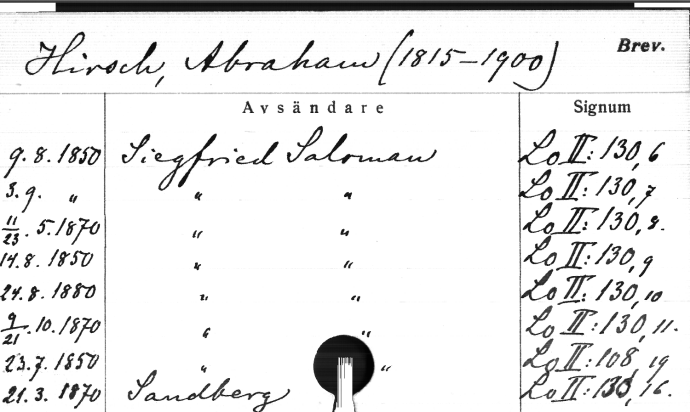 Hirsch, Abraham (1815–1900) Brev.
Avsändare Signum
9. 8. 1850 Siegfried Saloman Lo II: 130, 6
3. 9. " " " Lo II: 130, 7
11/23. 5. 1870 " " Lo II: 130, 8.
14. 8. 1850 " " Lo II: 130, 9
24. 8. 1880 " " Lo II: 130, 10
9/21. 10. 1870 " " Lo II: 130, 11.
23. 7. 1850 " " Lo II: 108, 19
21. 3. 1870 Sandberg Lo II: 130, 16.